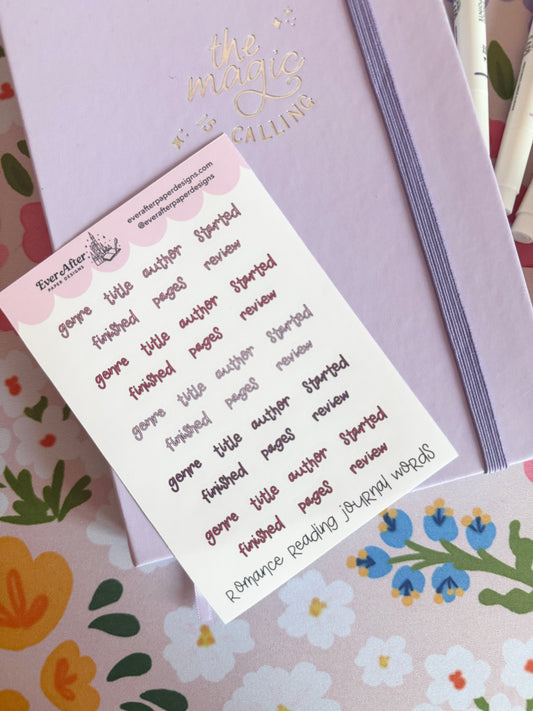 the
magic
CALLING
everafterpaperdesigns.com
@everafterpaperdesigns
Ever After
PAPER DESIGNS
genre title author Started
finished pages review
genre title author Started
finished pages review
genre title author Started
finished pages review
genre title author Started
finished pages review
genre title author Started
finished pages review
Romance Reading Journal Words